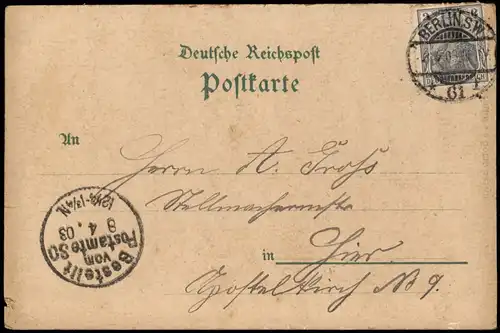 BERLIN S.W.
61
Deutsche Reichspost
Postkarte
An
Herrn A. Groß
Stellmachermstr
in Hier
Apostelkirch No 9.
Bestellt
vom
Postamte SO
8 4. 03
12½-1¾N.